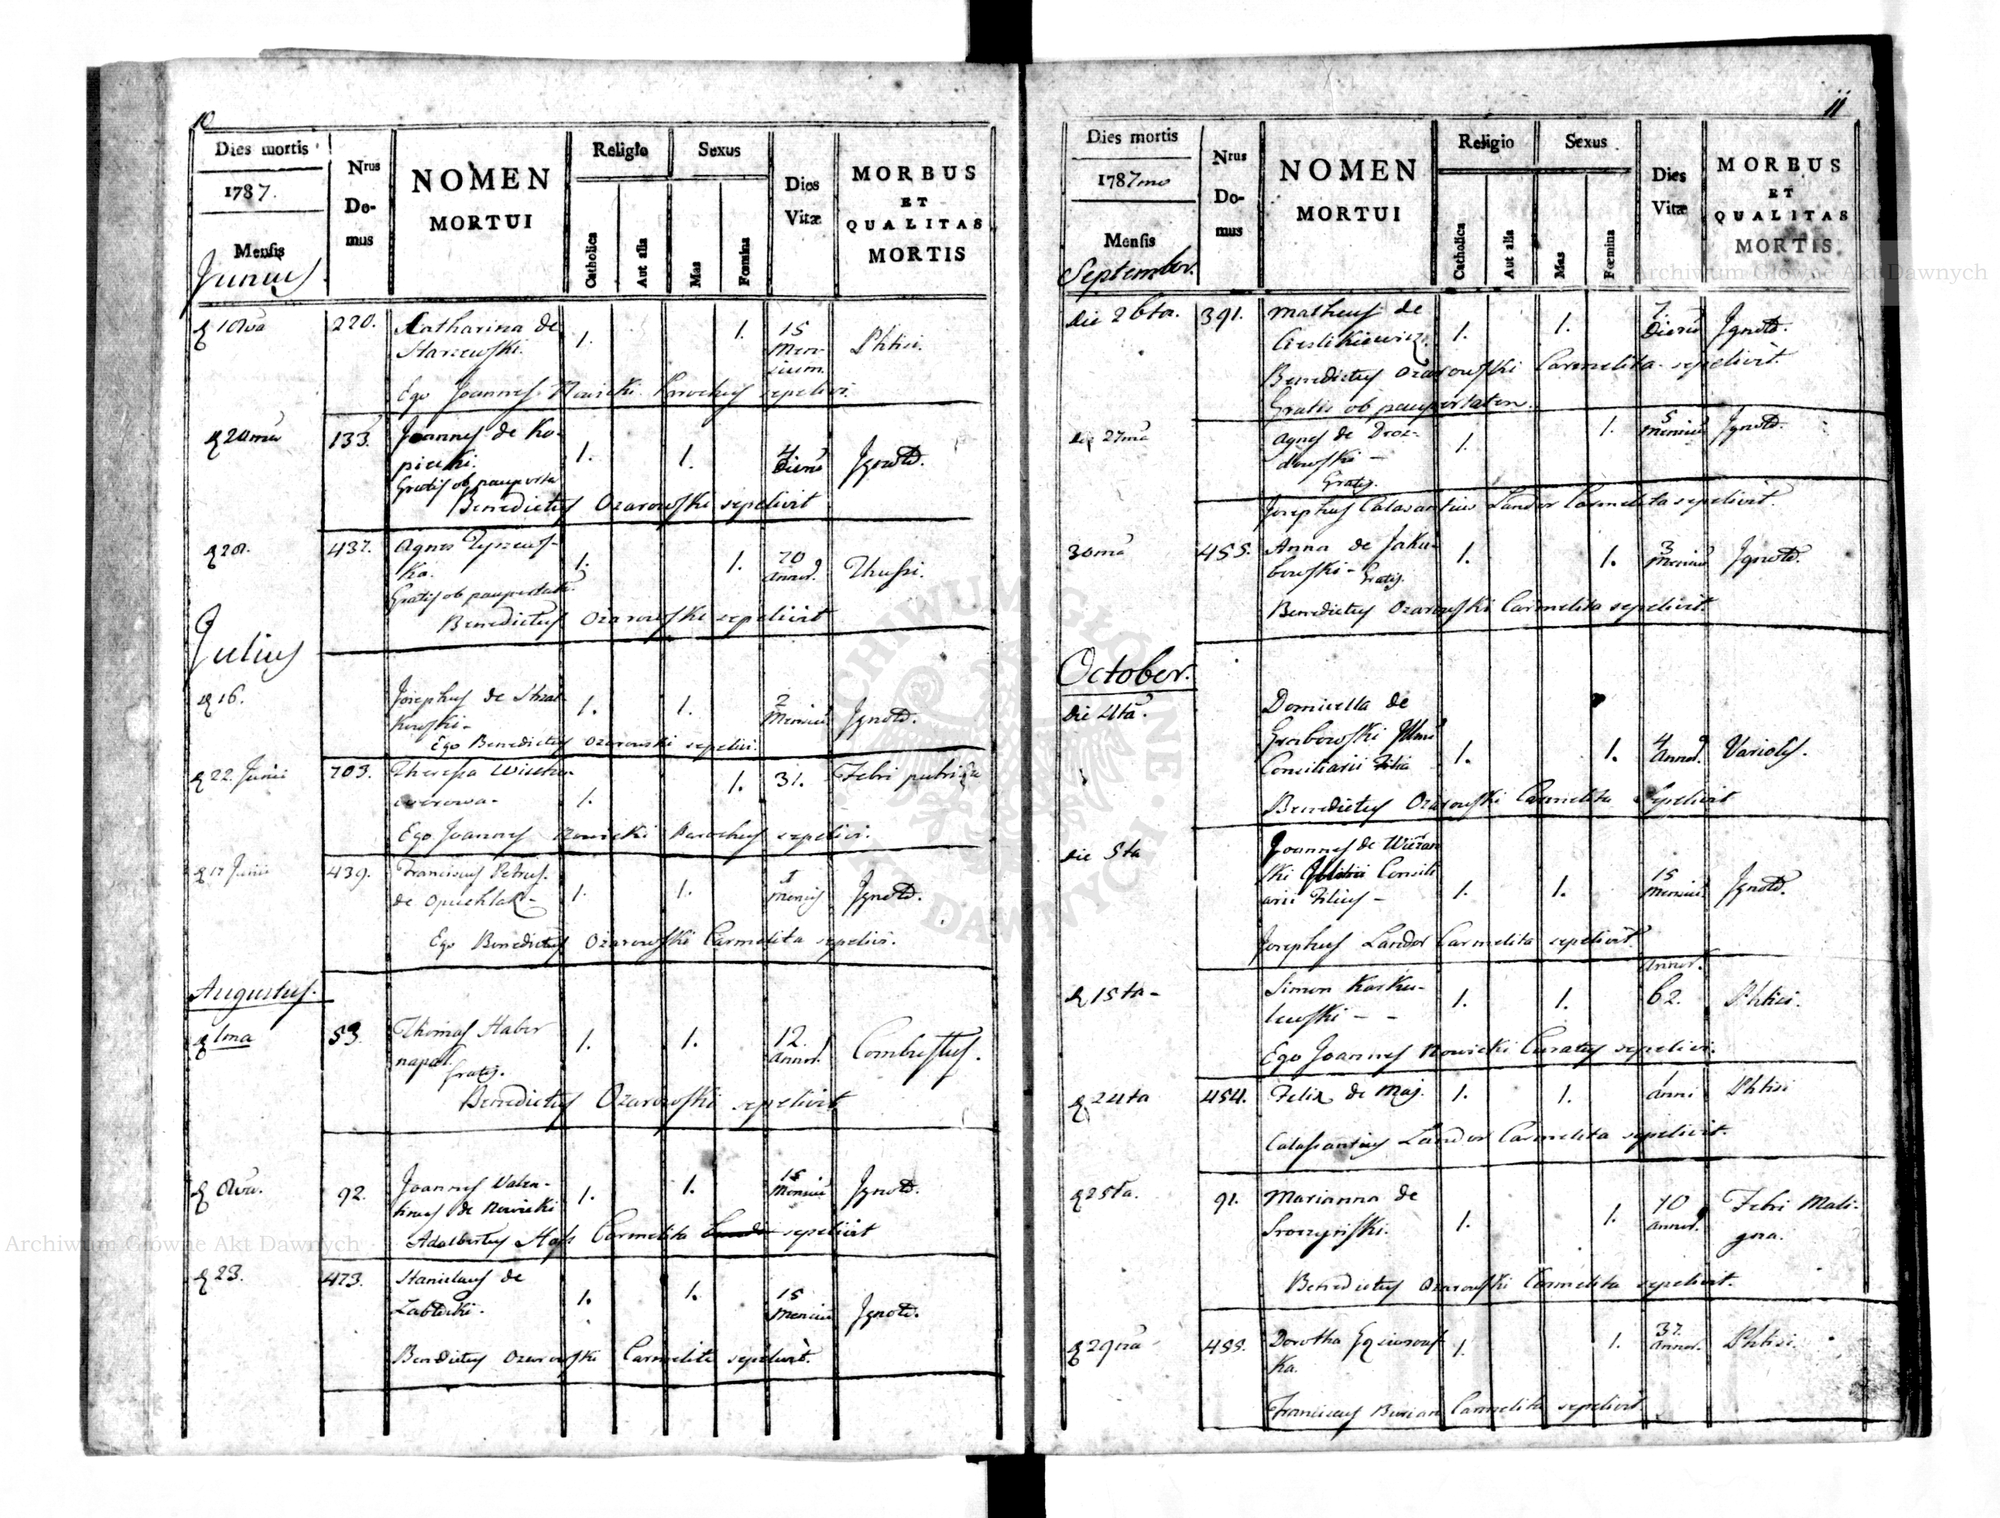 10
Dies mortis
1787.
Mensis
Junius
Nrus Domus
NOMEN
MORTUI
Religio
Catholica
Aut alia
Sexus
Mas
Fœmina
Dies
Vitæ
MORBUS
ET
QUALITAS
MORTIS
220. Catharina de 1. 1. 15
Mensium Phtisi.
Ego Joannes Nowicki Parochus sepelivi.
133. Joannes de Kopiecki. 1. 1. 4 Dierū Jgnotā.
Gratis ob pauperta
Benedictus Ozarowski sepelivit
437. Agnes 1. 1. 70 Annor. Thussi.
Gratis ob paupertate
Benedictus Ozarowski sepelivit
Julius
16. Josephus de 1. 1. 2 Mensiū Jgnotā.
Ego Benedictus Ozarowski sepelivi.
22. Junii 703. Theressa 1. 1. 31. Febri putrida
Ego Joannes Nowicki Parochus sepelivi.
17 Junii 439. Franciscus Petrus 1. 1. 1 Mensis Jgnotā.
de
Ego Benedictus Ozarowski Carmelita sepelivi.
Augustus.
1ma 53. Thomas Haber 1. 1. 12. Annor. Combustus.
napal.
Gratis.
Benedictus Ozarowski sepelivit
92. Joannes Valen- 1. 1. 15 Mensiū Jgnotā.
de Nowicki
Adalbertus Carmelita sepelivit
23. 473. Stanislaus de 1. 1. 15 Mensiū Jgnotā.
Benedictus Ozarowski Carmelita sepelivit.
11
Dies mortis
1787mo
Mensis
September.
Nrus Domus
NOMEN
MORTUI
Religio
Catholica
Aut alia
Sexus
Mas
Fœmina
Dies
Vitæ
MORBUS
ET
QUALITAS
MORTIS.
Die 26ta. 391. Matheus de 1. 1. 7. Dierū Jgnotā.
Cieslikiewicz.
Benedictus Ozarowski Carmelita sepelivit.
Gratis ob paupertatem.
Die 27ma Agnes de Droz- 1. 1. 5 Mensiū Jgnotā.
dowski -
Gratis.
Josephus Calasantius Landor Carmelita sepelivit.
30ma 455. Anna de Jaku- 1. 1. 3 Mensiū Jgnotā.
bowski - Gratis.
Benedictus Ozarowski Carmelita sepelivit.
October.
Die 4ta. Domicella de
Grabowski
Consiliarii Filia 1. 1. 4 Annor. Variolis.
Benedictus Ozarowski Carmelita Sepelivit
Die 5ta Joannes de
Consili
arii Filius - 1. 1. 15 Mensiū Jgnotā.
Josephus Landor Carmelita sepelivit.
15ta - Simon 1. 1. Annor. 62. Phtisi.
Ego Joannes Nowicki Curatus sepelivi.
24ta 454. Felix de Maj. 1. 1. 1 Anni Phtisi
Calassantius Landor Carmelita sepelivit.
25ta. 91. Marianna de 1. 1. 70 Annor. Febri Mali-
Sroczyński. gna.
Benedictus Ozarowski Carmelita sepelivit.
29na 455. Dorotha 1. 1. 37. Annor. Phtisi.
ka.
Franciscus Burian Carmelita sepelivit.
Archiwum Główne Akt Dawnych
Archiwum Główne Akt Dawnych
ARCHIWUM GŁÓWNE AKT DAWNYCH